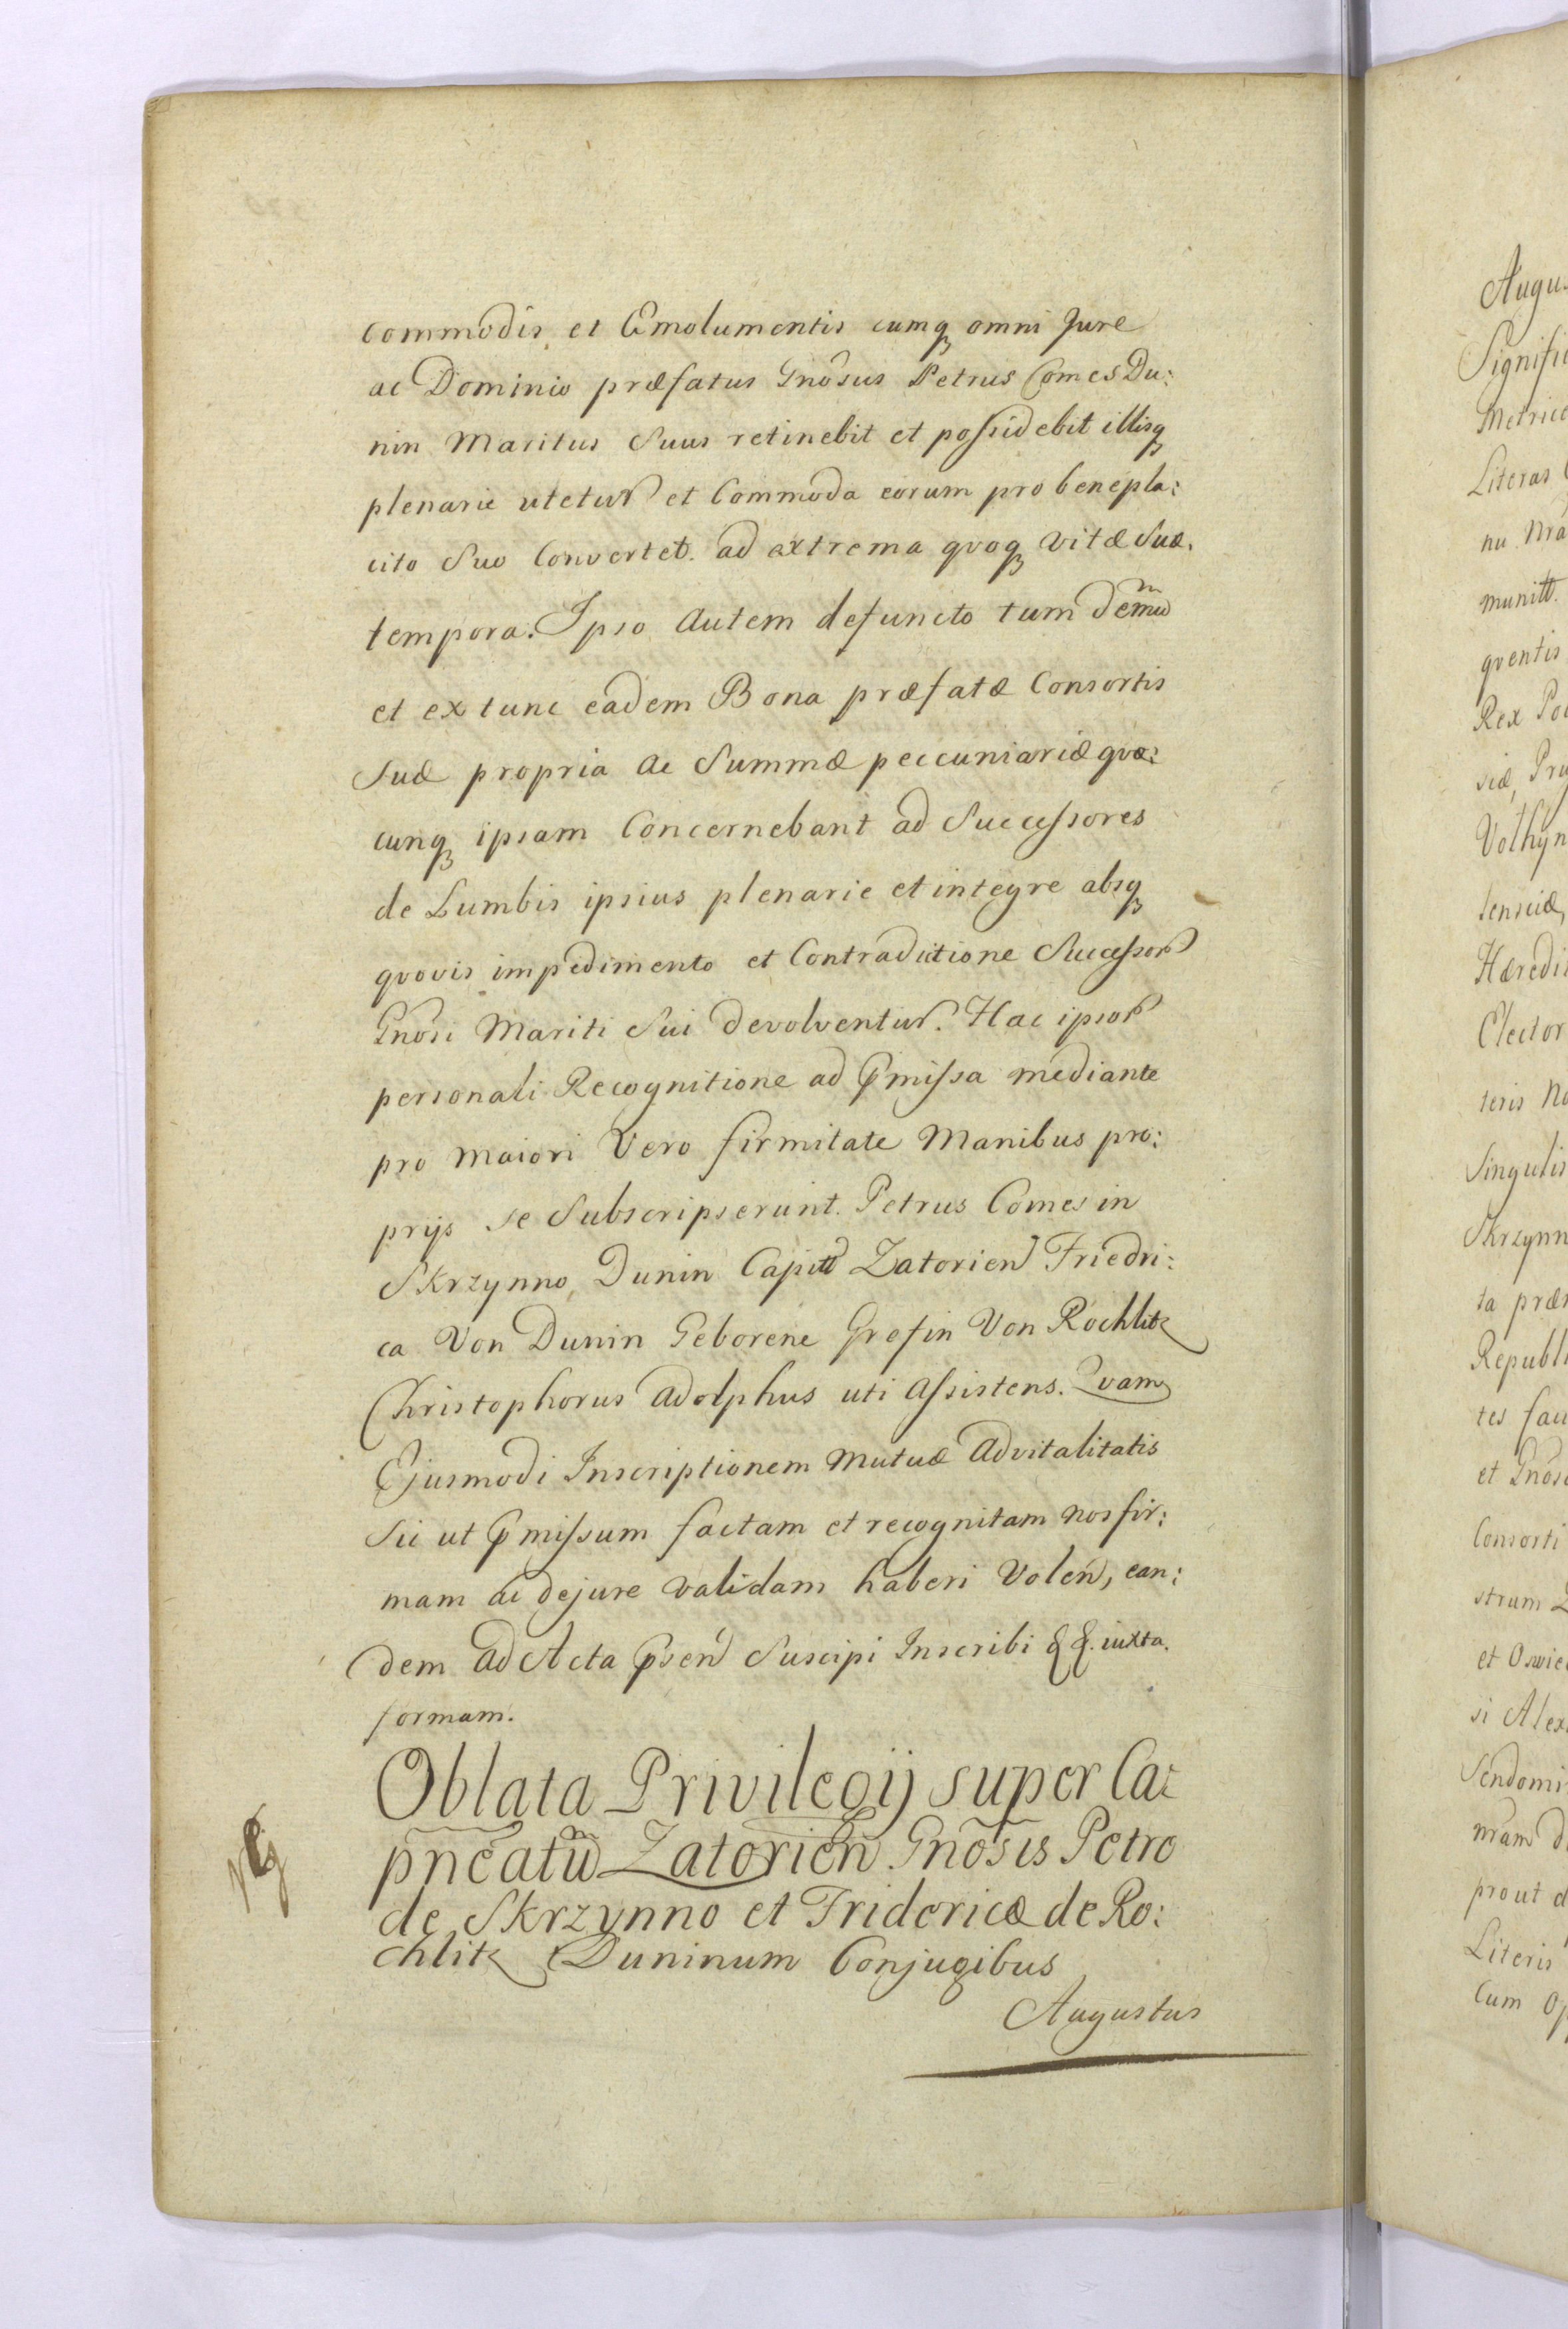 commodis, et Emolumentis cumq omni Jure
ac Dominio præfatus Gnosus Petrus Comes Du:
nin Maritus Suus retinebit et possidebit illisq
plenarie utetur et Commoda eorum pro benepla:
cito Suo Convertet. ad extrema qvoq vitæ Suæ.
tempora. Ipso autem defuncto tum demu
et ex tunc eadem Bona præfatæ Consortis
Suæ propria ac Summæ peccuniariæ qvæ:
cunq ipsam Concernebant ad Successores
de Lumbis ipsius plenarie et integre absq
qvovis impedimento et Contradictione Successor
Gnosi Mariti Sui devolventur. Hac ipsor
personali Recognitione ad pmissa mediante
pro maiori Vero firmitate Manibus pro:
prijs se Subscripserunt. Petrus Comes in
Skrzynno, Dunin Capitt Zatorien Friedri:
ca Von Dunin Geborene Grefin Von Rochlitz
Christophorus Adolphus uti Assistens. Qvam
Ejusmodi Inscriptionem Mutuæ Advitalitatis
Sic ut pmissum factam et recognitam nos fir:
mam ac dejure validam haberi Volen, ean:
dem ad Acta psen Suscipi Inscribi & &. iuxta.
formam.
Oblata Privilegij super Ca:
pneatu Zatorien Gnosis Petro
de Skrzynno et Fridericæ de Ro:
chlitz Duninum Conjugibus
Augustus
Augus
Signifi
Metric
Literas
nu. Nra
munitt.
qventis
Rex Po
siæ, Pru
Volhyn
Hæredi
Elector
teris No
Singulis
Skrzynn
ta præ
Republi
tes fau
et Gnos
Consorti
strum Z
et Oswie
si Alex
Sendomi
nram D
prout d
Literis
Cum Op